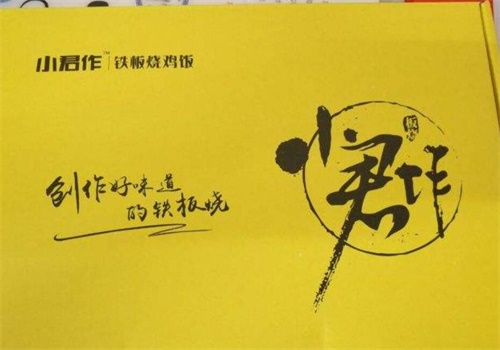 小君作™|铁板烧鸡饭
创作好味道
的铁板烧
小君作